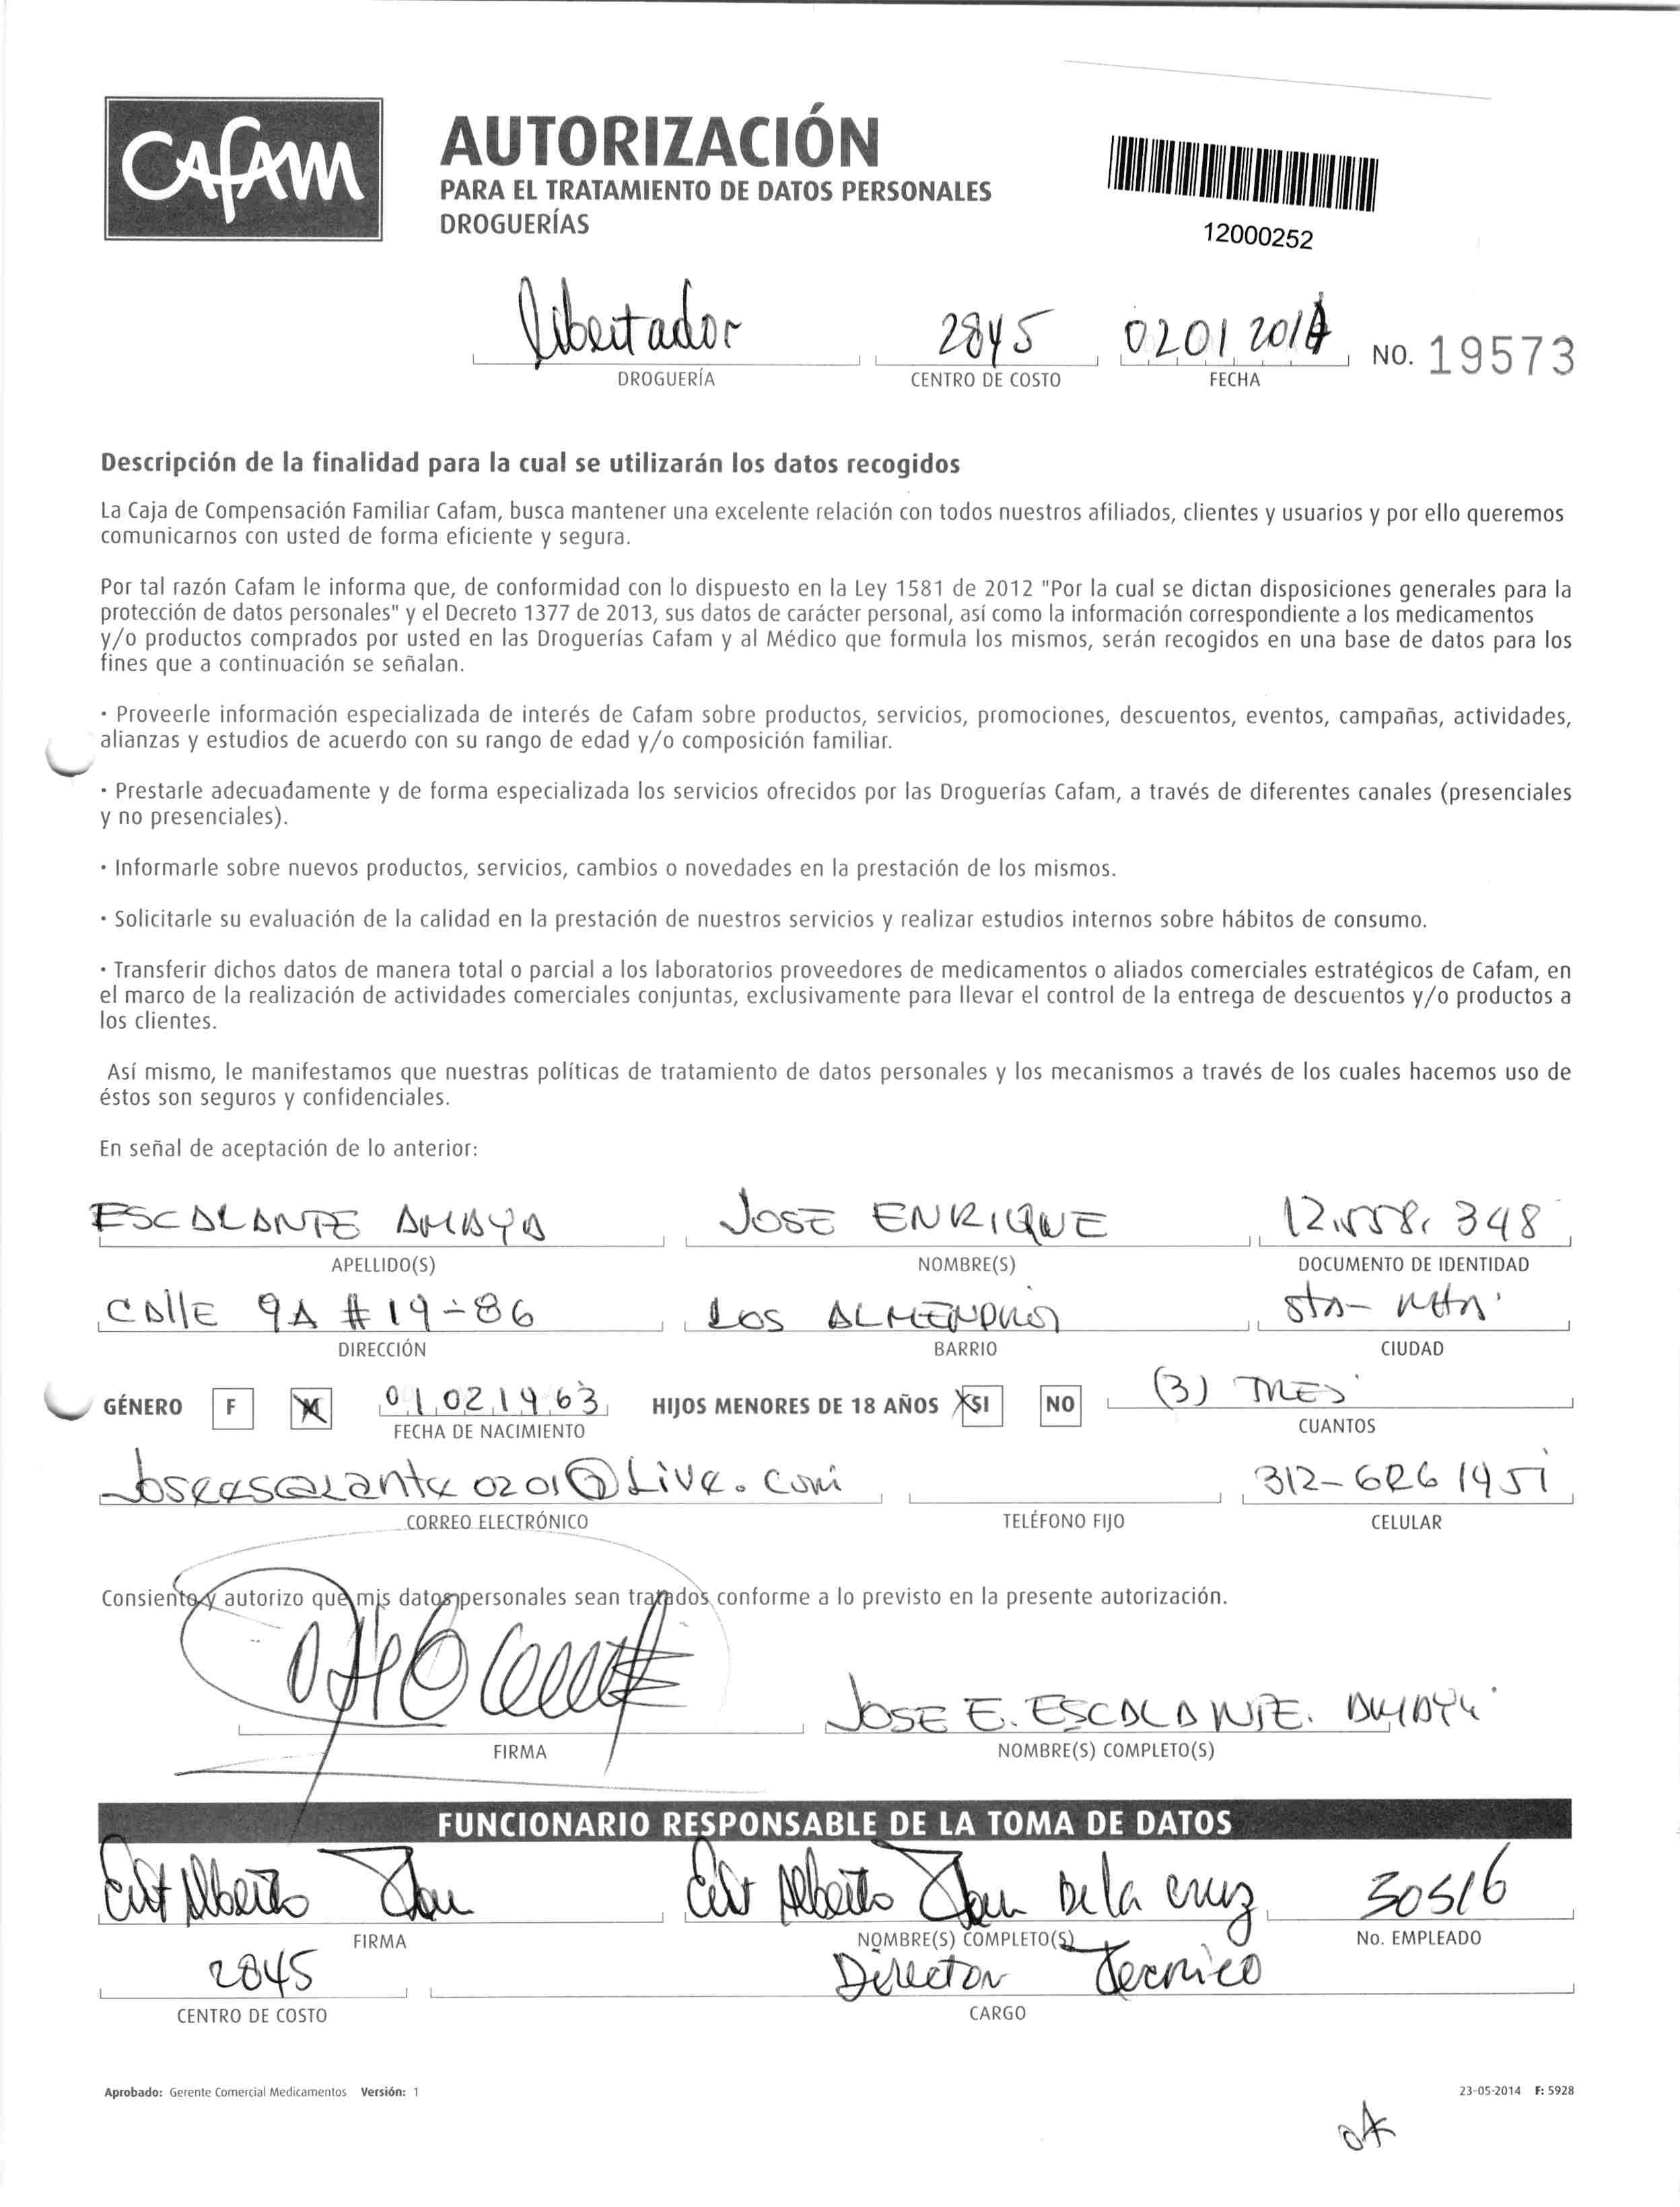 CAFAM
AUTORIZACIÓN
PARA EL TRATAMIENTO DE DATOS PERSONALES
DROGUERÍAS
12000252
Libertador 2845 0201201 NO. 19573
DROGUERÍA CENTRO DE COSTO FECHA
Descripción de la finalidad para la cual se utilizarán los datos recogidos
La Caja de Compensación Familiar Cafam, busca mantener una excelente relación con todos nuestros afiliados, clientes y usuarios y por ello queremos
comunicarnos con usted de forma eficiente y segura.
Por tal razón Cafam le informa que, de conformidad con lo dispuesto en la Ley 1581 de 2012 "Por la cual se dictan disposiciones generales para la
protección de datos personales" y el Decreto 1377 de 2013, sus datos de carácter personal, así como la información correspondiente a los medicamentos
y/o productos comprados por usted en las Droguerías Cafam y al Médico que formula los mismos, serán recogidos en una base de datos para los
fines que a continuación se señalan.
• Proveerle información especializada de interés de Cafam sobre productos, servicios, promociones, descuentos, eventos, campañas, actividades,
alianzas y estudios de acuerdo con su rango de edad y/o composición familiar.
• Prestarle adecuadamente y de forma especializada los servicios ofrecidos por las Droguerías Cafam, a través de diferentes canales (presenciales
y no presenciales).
• Informarle sobre nuevos productos, servicios, cambios o novedades en la prestación de los mismos.
• Solicitarle su evaluación de la calidad en la prestación de nuestros servicios y realizar estudios internos sobre hábitos de consumo.
• Transferir dichos datos de manera total o parcial a los laboratorios proveedores de medicamentos o aliados comerciales estratégicos de Cafam, en
el marco de la realización de actividades comerciales conjuntas, exclusivamente para llevar el control de la entrega de descuentos y/o productos a
los clientes.
Así mismo, le manifestamos que nuestras políticas de tratamiento de datos personales y los mecanismos a través de los cuales hacemos uso de
éstos son seguros y confidenciales.
En señal de aceptación de lo anterior:
ESCALANTE AMAYA JOSE ENRIQUE 12.558.348
APELLIDO(S) NOMBRE(S) DOCUMENTO DE IDENTIDAD
CALLE 9A # 19-86 LOS ALMENDROS Sta- Mta
DIRECCIÓN BARRIO CIUDAD
GÉNERO F M 01021963 HIJOS MENORES DE 18 AÑOS SI NO (3) TRES
FECHA DE NACIMIENTO CUANTOS
Joseescalante0201@Live.com 312-6261951
CORREO ELECTRÓNICO TELÉFONO FIJO CELULAR
Consiento y autorizo que mis datos personales sean tratados conforme a lo previsto en la presente autorización.
JOSE E. ESCALANTE. AMAYA
FIRMA NOMBRE(S) COMPLETO(S)
FUNCIONARIO RESPONSABLE DE LA TOMA DE DATOS
Alberto Alberto De la cruz 30516
FIRMA NOMBRE(S) COMPLETO(S) No. EMPLEADO
2845 Director Tecnico
CENTRO DE COSTO CARGO
Aprobado: Gerente Comercial Medicamentos Versión: 1 23-05-2014 F: 5928